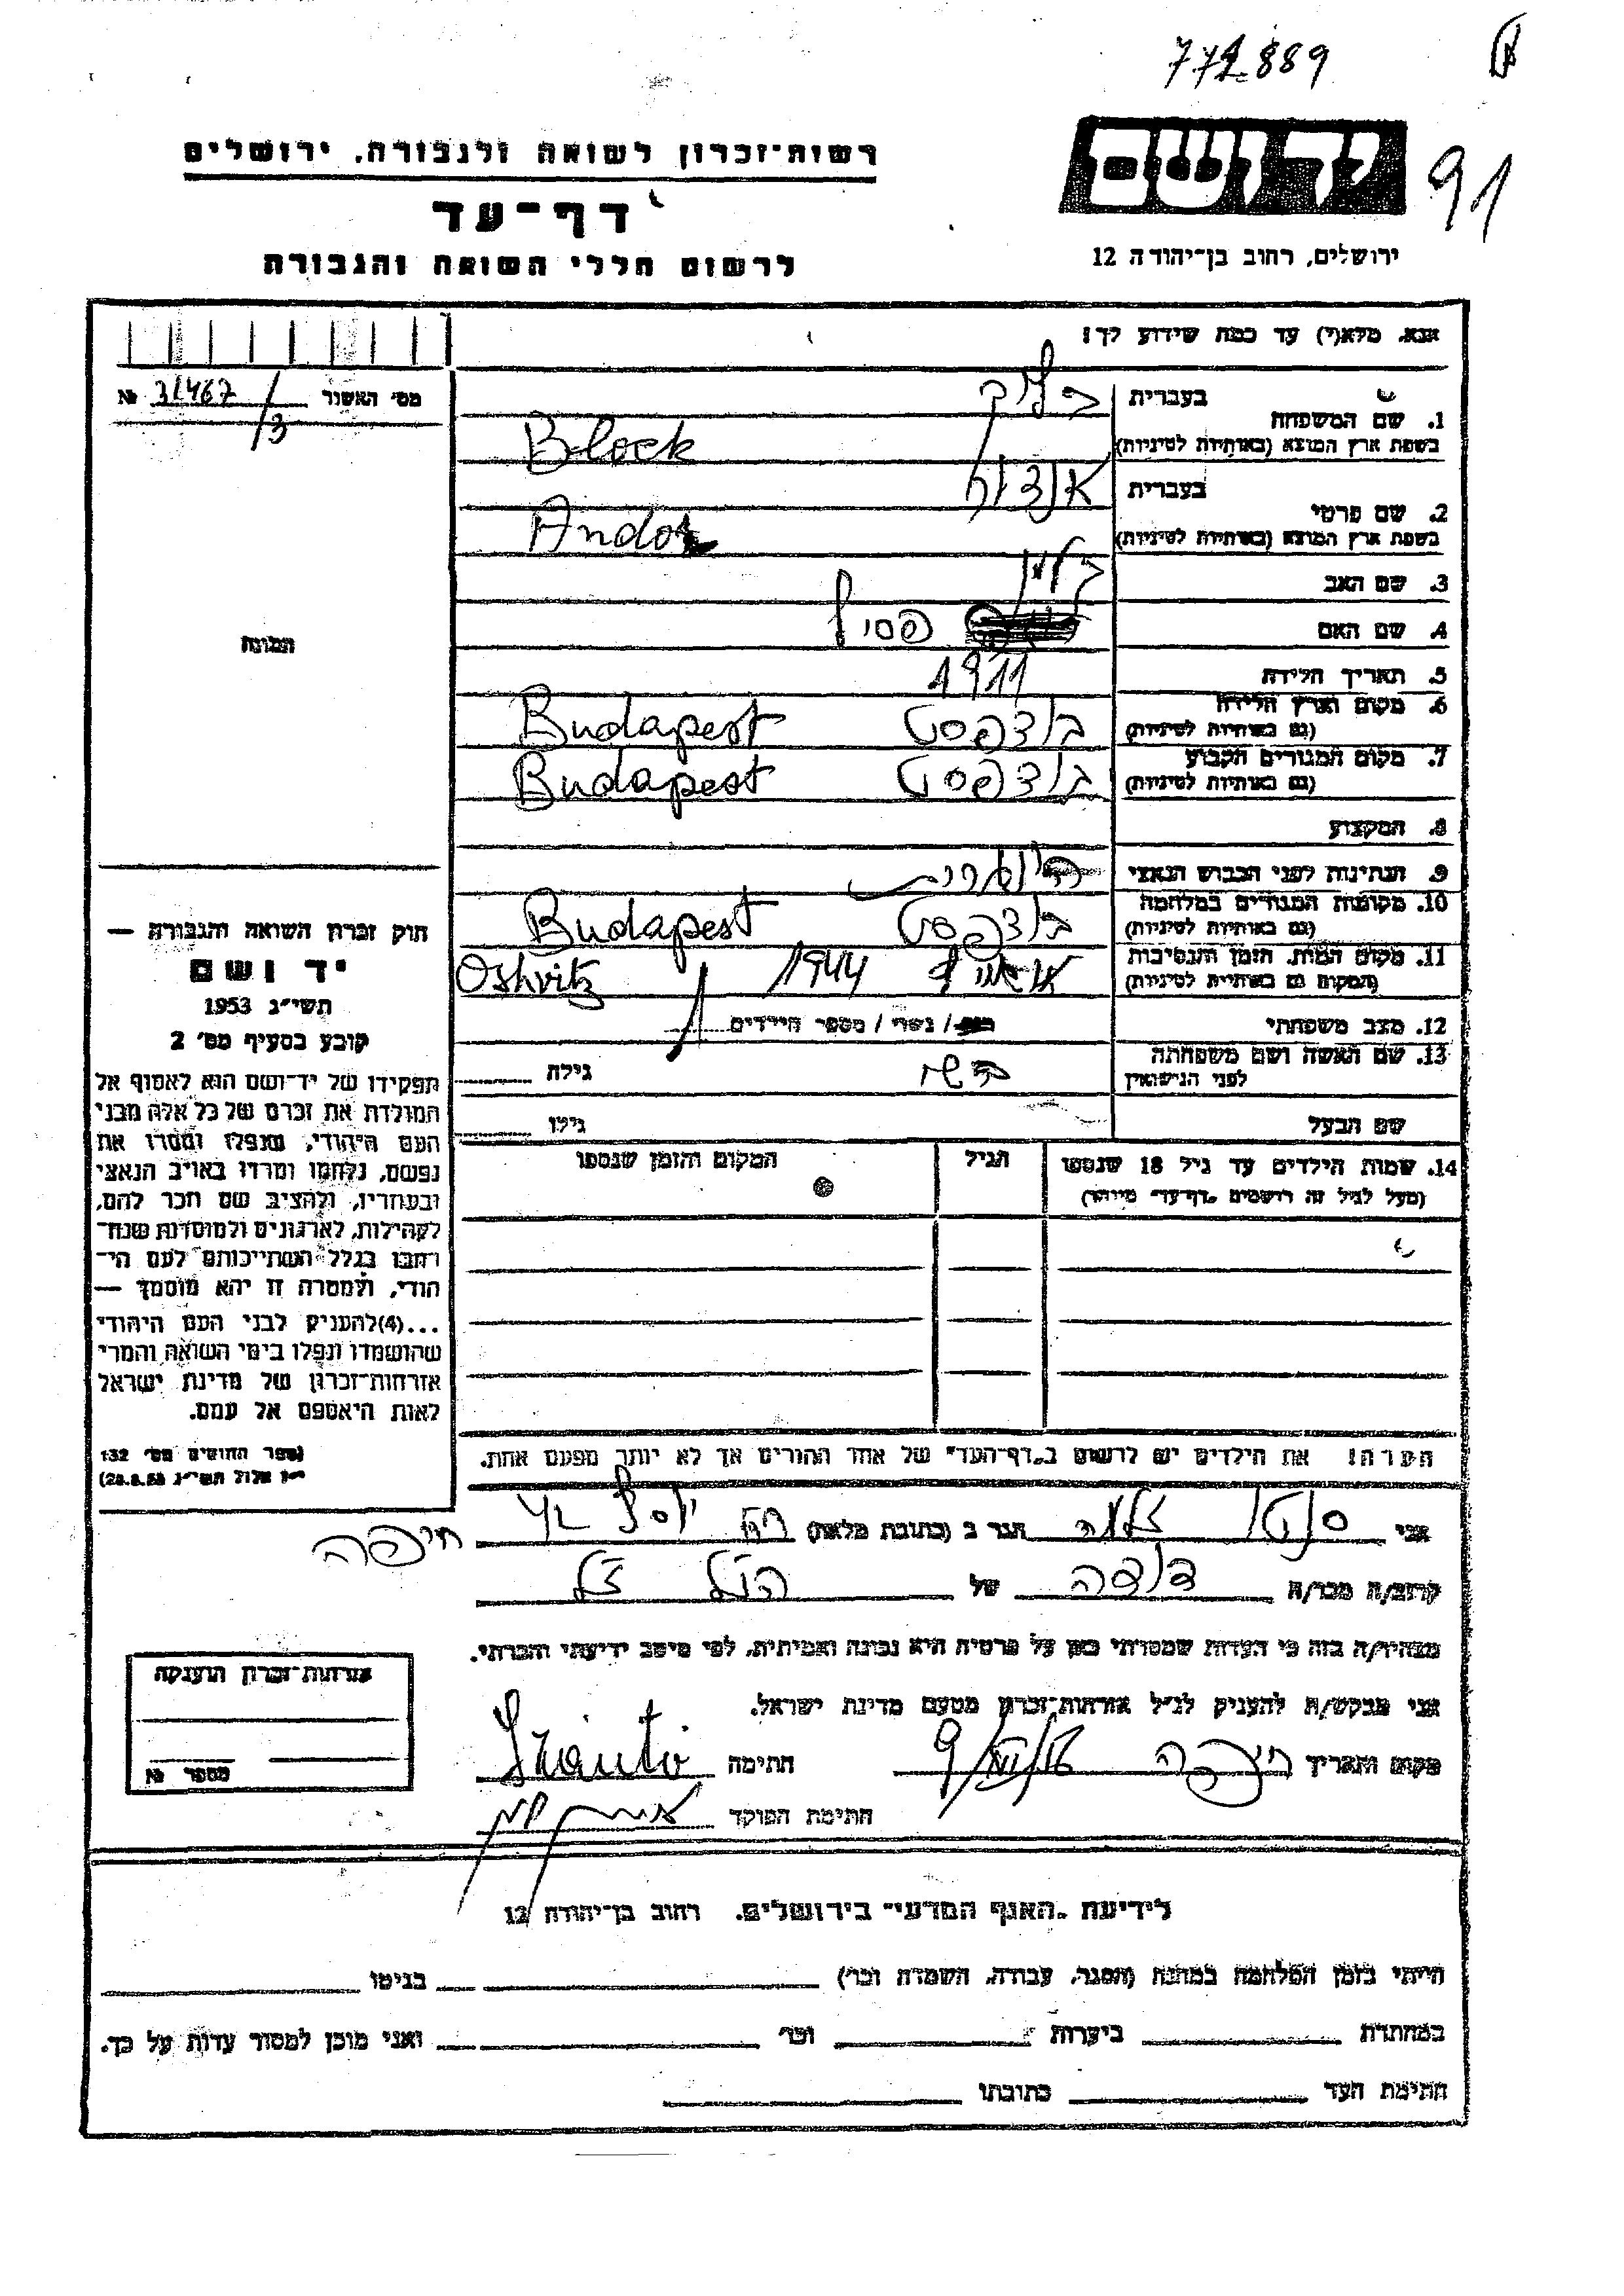 772889
91
יד ושם
ירושלים, רחוב בן־יהודה 12
רשות־זכרון לשואה ולגבורה, ירושלים
דף־עד
לרשום חללי השואה והגבורה
אנא, מלא(י) עד כמה שידוע לך!
מס׳ האשור 31467/3 №
1. שם המשפחה
בעברית בלוק
בשפת ארץ המוצא (באותיות לטיניות) Block
2. שם פרטי
בעברית אנדור
בשפת ארץ המוצא (באותיות לטיניות) Andor
3. שם האב
4. שם האם
5. תאריך הלידה 1911
6. מקום וארץ הלידה
(גם באותיות לטיניות) בודפסט Budapest
7. מקום המגורים הקבוע
(גם באותיות לטיניות) בודפסט Budapest
8. המקצוע
9. הנתינות לפני הכבוש הנאצי
10. מקומות המגורים במלחמה
(גם באותיות לטיניות) בודפסט Budapest
11. מקום המות, הזמן והנסיבות
(המקום גם באותיות לטיניות) 1944 Oshvitz
12. מצב משפחתי רווק / נשוי / מספר הילדים 1
13. שם האשה ושם משפחתה
לפני הנישואין גילה
שם הבעל גילו
14. שמות הילדים עד גיל 18 שנספו
(מעל לגיל זה רושמים „דף־עד״ מיוחד)
הגיל
המקום והזמן שנספו
התמונה
חוק זכרון השואה והגבורה —
יד ושם
תשי״ג 1953
קובע בסעיף מס׳ 2
תפקידו של יד־ושם הוא לאסוף אל
המולדת את זכרם של כל אלה מבני
העם היהודי, שנפלו ומסרו את
נפשם, נלחמו ומרדו באויב הנאצי
ובעוזריו, ולהציב שם וזכר להם,
לקהילות, לארגונים ולמוסדות שנח־
רחבו בגלל השתייכותם לעם הי־
הודי, ולמטרה זו יהא מוסמך —
...(4)להעניק לבני העם היהודי
שהושמדו ונפלו בימי השואה והמרי
אזרחות־זכרון של מדינת ישראל
לאות היאספם אל עמם.
(ספר החוקים מס׳ 132
י״ז אלול תשי״ג 28.8.53)
הערה! את הילדים יש לרשום ב„דף־העד״ של אחד ההורים אך לא יותר מפעם אחת.
אני הגר ב (כתובת מלאה) חיפה
קרוב/ה מכר/ה דודה של הנ״ל ז״ל
מצהיר/ה בזה כי העדות שמסרתי כאן על פרטיה היא נכונה ואמיתית, לפי מיטב ידיעתי והכרתי.
אני מבקש/ת להעניק לנ״ל אזרחות־זכרון מטעם מדינת ישראל.
מקום ותאריך חיפה חתימה Szántó
חתימת הפוקד
אזרחות־זכרון הוענקה
מספר №
לידיעת „האגף המדעי״ בירושלים, רחוב בן־יהודה 12
הייתי בזמן המלחמה במחנה (הסגר, עבודה, השמדה וכו׳) בגיטו
במחתרת ביערות וכו׳ ואני מוכן למסור עדות על כך.
חתימת העד כתובתו